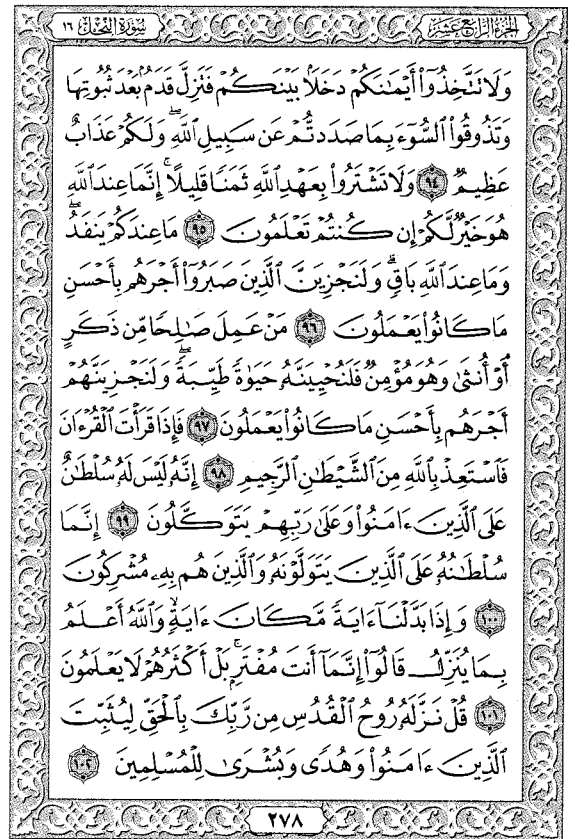 الجزء الرابع عشر
سورة النحل ١٦
وَلَا تَتَّخِذُوٓا۟ أَيْمَٰنَكُمْ دَخَلًۢا بَيْنَكُمْ فَتَزِلَّ قَدَمٌۢ بَعْدَ ثُبُوتِهَا
وَتَذُوقُوا۟ ٱلسُّوٓءَ بِمَا صَدَدتُّمْ عَن سَبِيلِ ٱللَّهِ ۖ وَلَكُمْ عَذَابٌ
عَظِيمٌ ٩٤ وَلَا تَشْتَرُوا۟ بِعَهْدِ ٱللَّهِ ثَمَنًا قَلِيلًا ۚ إِنَّمَا عِندَ ٱللَّهِ
هُوَ خَيْرٌ لَّكُمْ إِن كُنتُمْ تَعْلَمُونَ ٩٥ مَا عِندَكُمْ يَنفَدُ ۖ
وَمَا عِندَ ٱللَّهِ بَاقٍ ۗ وَلَنَجْزِيَنَّ ٱلَّذِينَ صَبَرُوٓا۟ أَجْرَهُم بِأَحْسَنِ
مَا كَانُوا۟ يَعْمَلُونَ ٩٦ مَنْ عَمِلَ صَٰلِحًا مِّن ذَكَرٍ
أَوْ أُنثَىٰ وَهُوَ مُؤْمِنٌ فَلَنُحْيِيَنَّهُۥ حَيَوٰةً طَيِّبَةً ۖ وَلَنَجْزِيَنَّهُمْ
أَجْرَهُم بِأَحْسَنِ مَا كَانُوا۟ يَعْمَلُونَ ٩٧ فَإِذَا قَرَأْتَ ٱلْقُرْءَانَ
فَٱسْتَعِذْ بِٱللَّهِ مِنَ ٱلشَّيْطَٰنِ ٱلرَّجِيمِ ٩٨ إِنَّهُۥ لَيْسَ لَهُۥ سُلْطَٰنٌ
عَلَى ٱلَّذِينَ ءَامَنُوا۟ وَعَلَىٰ رَبِّهِمْ يَتَوَكَّلُونَ ٩٩ إِنَّمَا
سُلْطَٰنُهُۥ عَلَى ٱلَّذِينَ يَتَوَلَّوْنَهُۥ وَٱلَّذِينَ هُم بِهِۦ مُشْرِكُونَ
١٠٠ وَإِذَا بَدَّلْنَآ ءَايَةً مَّكَانَ ءَايَةٍ ۙ وَٱللَّهُ أَعْلَمُ
بِمَا يُنَزِّلُ قَالُوٓا۟ إِنَّمَآ أَنتَ مُفْتَرٍۭ ۚ بَلْ أَكْثَرُهُمْ لَا يَعْلَمُونَ
١٠١ قُلْ نَزَّلَهُۥ رُوحُ ٱلْقُدُسِ مِن رَّبِّكَ بِٱلْحَقِّ لِيُثَبِّتَ
ٱلَّذِينَ ءَامَنُوا۟ وَهُدًى وَبُشْرَىٰ لِلْمُسْلِمِينَ ١٠٢
٢٧٨